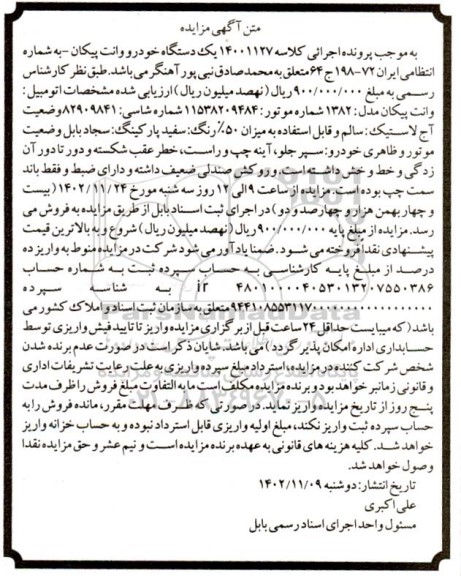 متن آگهی مزایده
به موجب پرونده اجرائی کلاسه ۱۴۰۰۱۱۲۷ یک دستگاه خودرو وانت پیکان - به شماره
انتظامی ایران ۷۲-۱۹۸ج۶۴ متعلق به محمدصادق نبی پور آهنگر می باشد. طبق نظر کارشناس
رسمی به مبلغ ۹۰۰/۰۰۰/۰۰۰ ریال (نهصد میلیون ریال) ارزیابی شده مشخصات اتومبیل:
وانت پیکان مدل: ۱۳۸۲ شماره موتور: ۱۱۵۳۸۲۰۹۴۸۴ شماره شاسی: ۸۲۹۰۹۸۴۱
آج لاستیک: سالم و قابل استفاده به میزان ۵۰٪ رنگ: سفید پارکینگ: سجاد بابل وضعیت
موتور و ظاهری خودرو: سپر جلو، آینه چپ و راست، خطر عقب شکسته و دور تا دور آن
زدگی و خط و خش داشته است. و روکش صندلی ضعیف داشته و دارای ضبط و فقط باند
سمت چپ بوده است. مزایده از ساعت ۹ الی ۱۲ روز سه شنبه مورخ ۱۴۰۲/۱۱/۲۴ (بیست
و چهار بهمن هزار و چهارصد و دو) در اجرای ثبت اسناد بابل از طریق مزایده به فروش می
رسد. مزایده از مبلغ پایه ۹۰۰/۰۰۰/۰۰۰ ریال (نهصد میلیون ریال) شروع و به بالاترین قیمت
پیشنهادی نقداً فروخته می شود. ضمناً یادآور می شود شرکت در مزایده منوط به واریز ده
درصد از مبلغ پایه کارشناسی به حساب سپرده ثبت به شماره حساب
ir ۴۸۰۱۰۰۰۰۴۰۵۳۰۱۳۲۰۷۵۵۰۳۸۶ به شناسه سپرده
متعلق به سازمان ثبت اسناد و املاک کشور می
باشد (که میبایست حداقل ۲۴ ساعت قبل از برگزاری مزایده واریز تا تایید فیش واریزی توسط
حسابداری اداره امکان پذیر گردد) می باشد. شایان ذکر است در صورت عدم برنده شدن
شخص شرکت کننده در مزایده، استرداد مبلغ سپرده واریزی به علت رعایت تشریفات اداری
و قانونی زمانبر خواهد بود و برنده مزایده مکلف است ما به التفاوت مبلغ فروش را ظرف مدت
پنج روز از تاریخ مزایده واریز نماید. در صورتی که ظرف مهلت مقرر، مانده فروش را به
حساب سپرده ثبت واریز نکند، مبلغ اولیه واریزی قابل استرداد نبوده و به حساب خزانه واریز
خواهد شد. کلیه هزینه های قانونی به عهده برنده مزایده است و نیم عشر و حق مزایده نقداً
وصول خواهد شد.
تاریخ انتشار: دوشنبه ۱۴۰۲/۱۱/۰۹
علی اکبری
مسئول واحد اجرای اسناد رسمی بابل